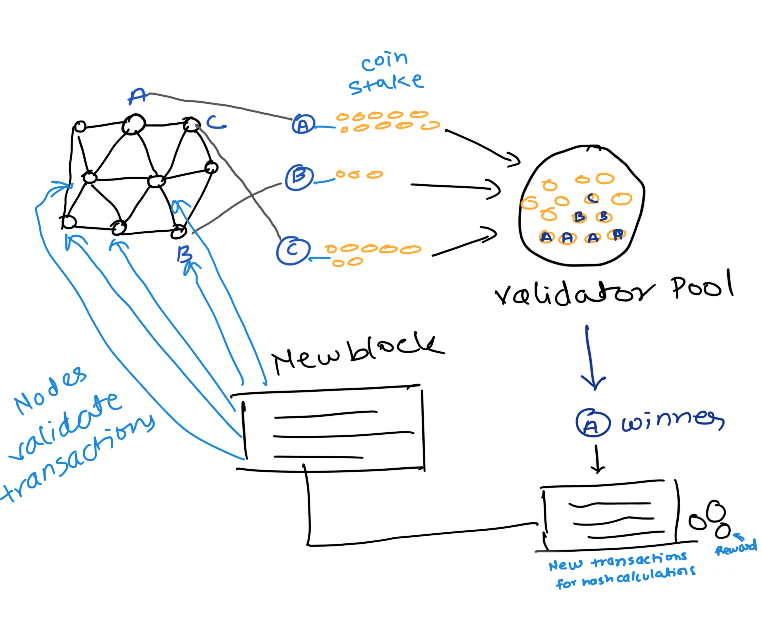 coin
stake
A
C
A
B
C
B
C
B B
A A A A
validator Pool
New block
Nodes
validate
transactions
A winner
New transactions
for hash calculations
Reward